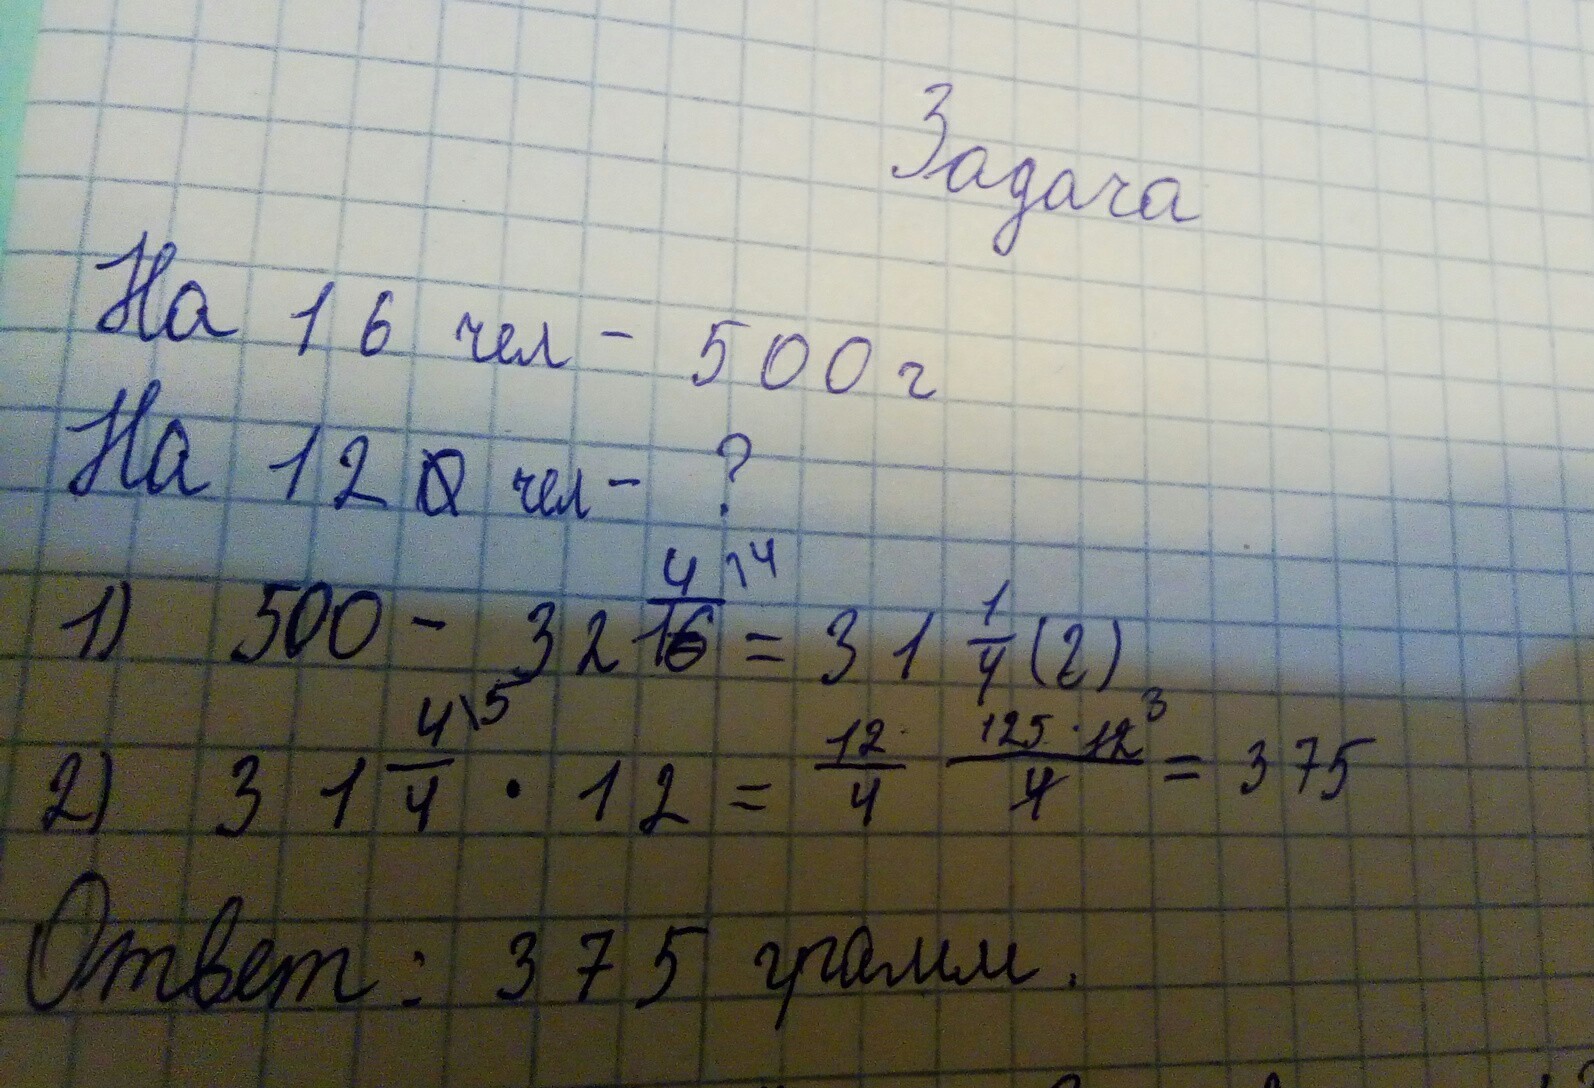 Задача
На 16 чел - 500 г
На 120 чел - ?
1) 500 - 32 4/16 \4 = 31 1/4 (г)
2) 31 4/4 \5 · 12 = 12/4 125 · 12 3/4 = 375
Ответ: 375 грамм.